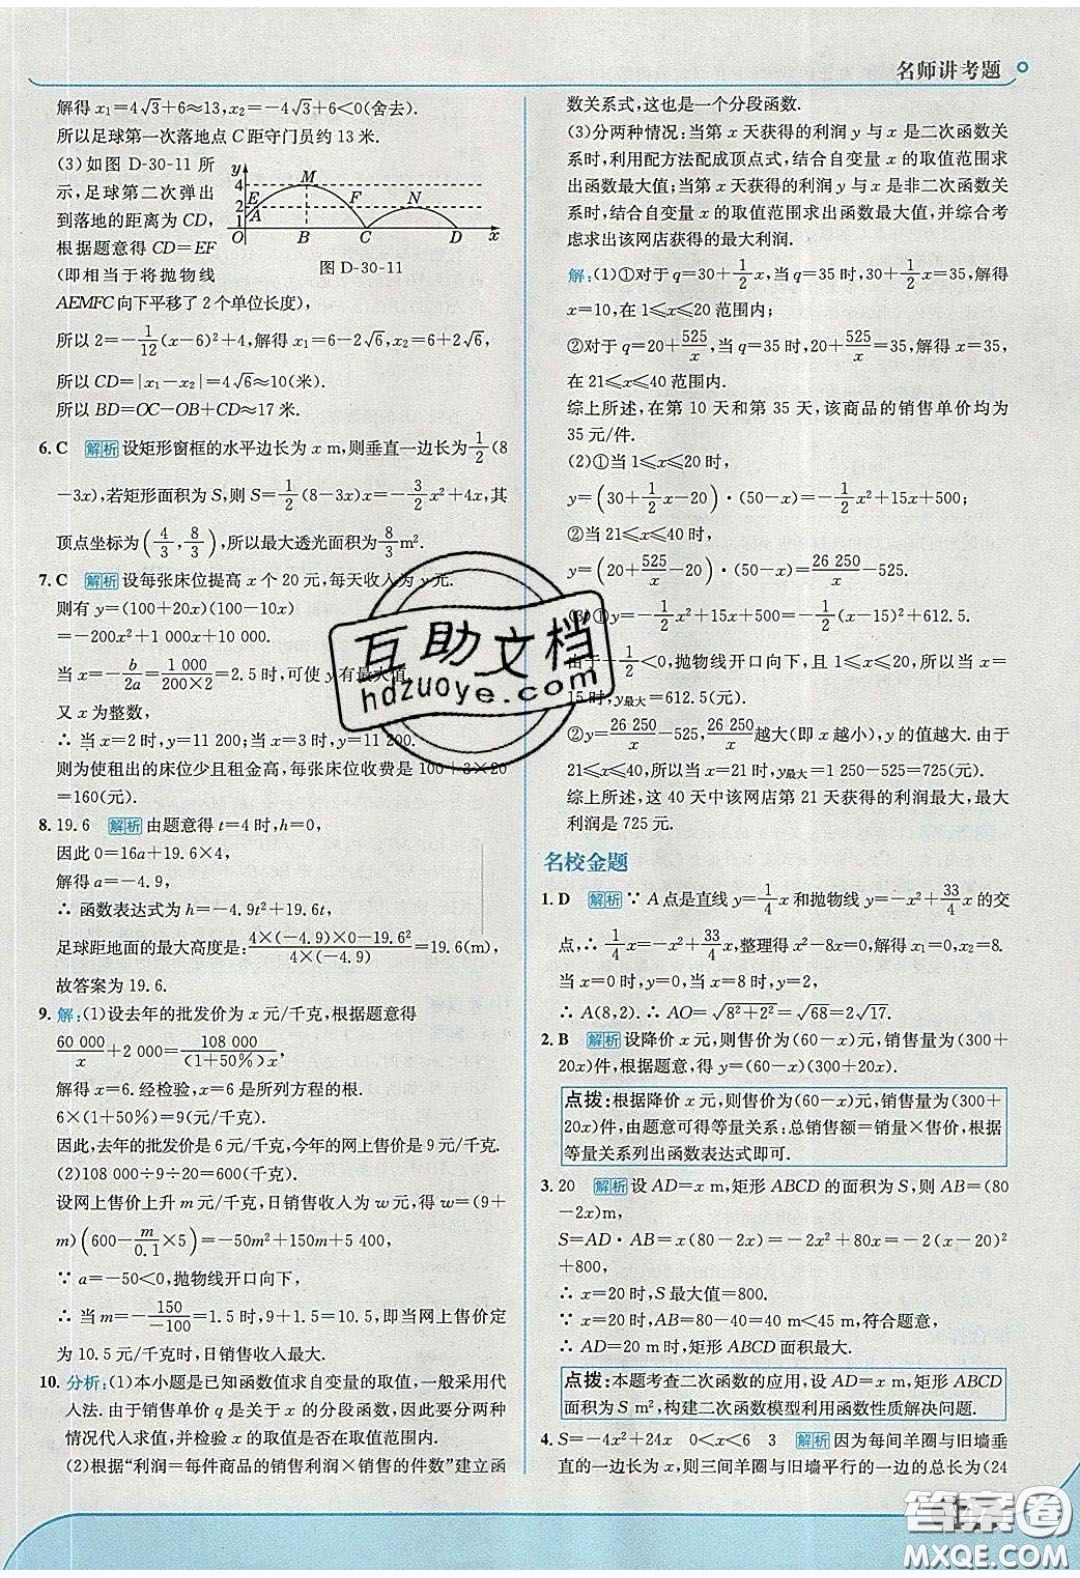 名师讲考题
解得 x₁=4√3+6≈13,x₂=-4√3+6<0(舍去).
所以足球第一次落地点 C 距守门员约 13 米.
(3)如图 D-30-11 所
示,足球第二次弹出
到落地的距离为 CD,
根据题意得 CD=EF
(即相当于将抛物线
AEMFC 向下平移了 2 个单位长度),
y
4
2
1
M
E
A
F
N
O
B
C
D
x
图 D-30-11
所以 2=-1/12(x-6)²+4,解得 x₁=6-2√6,x₂=6+2√6,
所以 CD=|x₁-x₂|=4√6≈10(米).
所以 BD=OC-OB+CD≈17 米.
6. C 解析 设矩形窗框的水平边长为 x m,则垂直一边长为 1/2(8
-3x),若矩形面积为 S,则 S=1/2(8-3x)x=-3/2x²+4x,其
顶点坐标为(4/3,8/3),所以最大透光面积为 8/3 m².
7. C 解析 设每张床位提高 x 个 20 元,每天收入为 y 元.
则有 y=(100+20x)(100-10x)
=-200x²+1 000x+10 000.
当 x=-b/2a=1 000/200×2=2.5 时,可使 y 有最大值.
又 x 为整数,
∴ 当 x=2 时,y=11 200;当 x=3 时,y=11 200.
则为使租出的床位少且租金高,每张床位收费是 100+3×20
=160(元).
8. 19.6 解析 由题意得 t=4 时,h=0,
因此 0=16a+19.6×4,
解得 a=-4.9,
∴ 函数表达式为 h=-4.9t²+19.6t,
足球距地面的最大高度是:4×(-4.9)×0-19.6²/4×(-4.9)=19.6(m),
故答案为 19.6.
9. 解:(1)设去年的批发价为 x 元/千克,根据题意得
60 000/x+2 000=108 000/(1+50%)x,
解得 x=6.经检验,x=6 是所列方程的根.
6×(1+50%)=9(元/千克).
因此,去年的批发价是 6 元/千克,今年的网上售价是 9 元/千克.
(2)108 000÷9÷20=600(千克).
设网上售价上升 m 元/千克,日销售收入为 w 元,得 w=(9+
m)(600-m/0.1×5)=-50m²+150m+5 400,
∵ a=-50<0,抛物线开口向下,
∴ 当 m=-150/-100=1.5 时,9+1.5=10.5,即当网上售价定
为 10.5 元/千克时,日销售收入最大.
10. 分析:(1)本小题是已知函数值求自变量的取值,一般采用代
人法.由于销售单价 q 是关于 x 的分段函数,因此要分两种
情况代入求值,并检验 x 的取值是否在取值范围内.
(2)根据“利润=每件商品的销售利润×销售的件数”建立函
数关系式,这也是一个分段函数.
(3)分两种情况:当第 x 天获得的利润 y 与 x 是二次函数关
系时,利用配方法配成顶点式,结合自变量 x 的取值范围求
出函数最大值;当第 x 天获得的利润 y 与 x 是非二次函数关
系时,结合自变量 x 的取值范围求出函数最大值,并综合考
虑求出该网店获得的最大利润.
解:(1)①对于 q=30+1/2x,当 q=35 时,30+1/2x=35,解得
x=10,在 1≤x≤20 范围内;
②对于 q=20+525/x,当 q=35 时,20+525/x=35,解得 x=35,
在 21≤x≤40 范围内.
综上所述,在第 10 天和第 35 天,该商品的销售单价均为
35 元/件.
(2)①当 1≤x≤20 时,
y=(30+1/2x-20)·(50-x)=-1/2x²+15x+500;
②当 21≤x≤40 时,
y=(20+525/x-20)·(50-x)=26 250/x-525.
(3)①y=-1/2x²+15x+500=-1/2(x-15)²+612.5.
由于-1/2<0,抛物线开口向下,且 1≤x≤20,所以当 x=
15 时,y最大=612.5(元).
②y=26 250/x-525,26 250/x 越大(即 x 越小),y 的值越大.由于
21≤x≤40,所以当 x=21 时,y最大=1 250-525=725(元).
综上所述,这 40 天中该网店第 21 天获得的利润最大,最大
利润是 725 元.
名校金题
1. D 解析 ∵ A 点是直线 y=1/4x 和抛物线 y=-x²+33/4x 的交
点,∴ 1/4x=-x²+33/4x,整理得 x²-8x=0,解得 x₁=0,x₂=8.
当 x=0 时,y=0;当 x=8 时,y=2,
∴ A(8,2).∴ AO=√8²+2²=√68=2√17.
2. B 解析 设降价 x 元,则售价为(60-x)元,销售量为(300+
20x)件,根据题意,得 y=(60-x)(300+20x).
点拨:根据降价 x 元,则售价为(60-x)元,销售量为(300+
20x)件,由题意可得等量关系:总销售额=销量×售价,根据
等量关系列出函数表达式即可.
3. 20 解析 设 AD=x m,矩形 ABCD 的面积为 S,则 AB=(80
-2x)m,
S=AD·AB=x(80-2x)=-2x²+80x=-2(x-20)²
+800,
∴ x=20 时,S 最大值=800.
∵ x=20 时,AB=80-40=40 m<45 m,符合题意,
∴ AD=20 m 时,矩形 ABCD 面积最大.
点拨:本题考查二次函数的应用,设 AD=x m,矩形 ABCD
面积为 S m²,构建二次函数模型利用函数性质解决问题.
4. S=-4x²+24x 0<x<6 3 解析 因为每间羊圈与旧墙垂
直的一边的长为 x m,则三间羊圈与旧墙平行的一边的总长为(24
互助文档
hdzuoye.com
答案卷
MXQE.COM